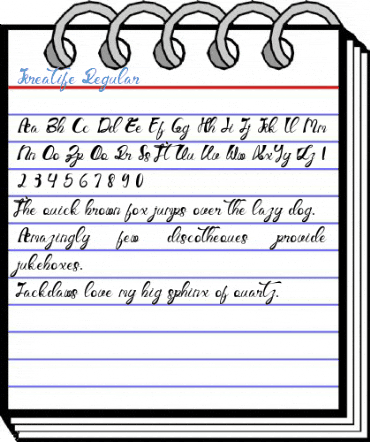 Kreatife Regular
Aa Bb Cc Dd Ee Ff Gg Hh Ii Jj Kk Ll Mm
Nn Oo Pp Qq Rr Ss Tt Uu Vv Ww Xx Yy Zz 1
2 3 4 5 6 7 8 9 0
The quick brown fox jumps over the lazy dog.
Amazingly few discotheques provide
jukeboxes.
Jackdaws love my big sphinx of quartz.